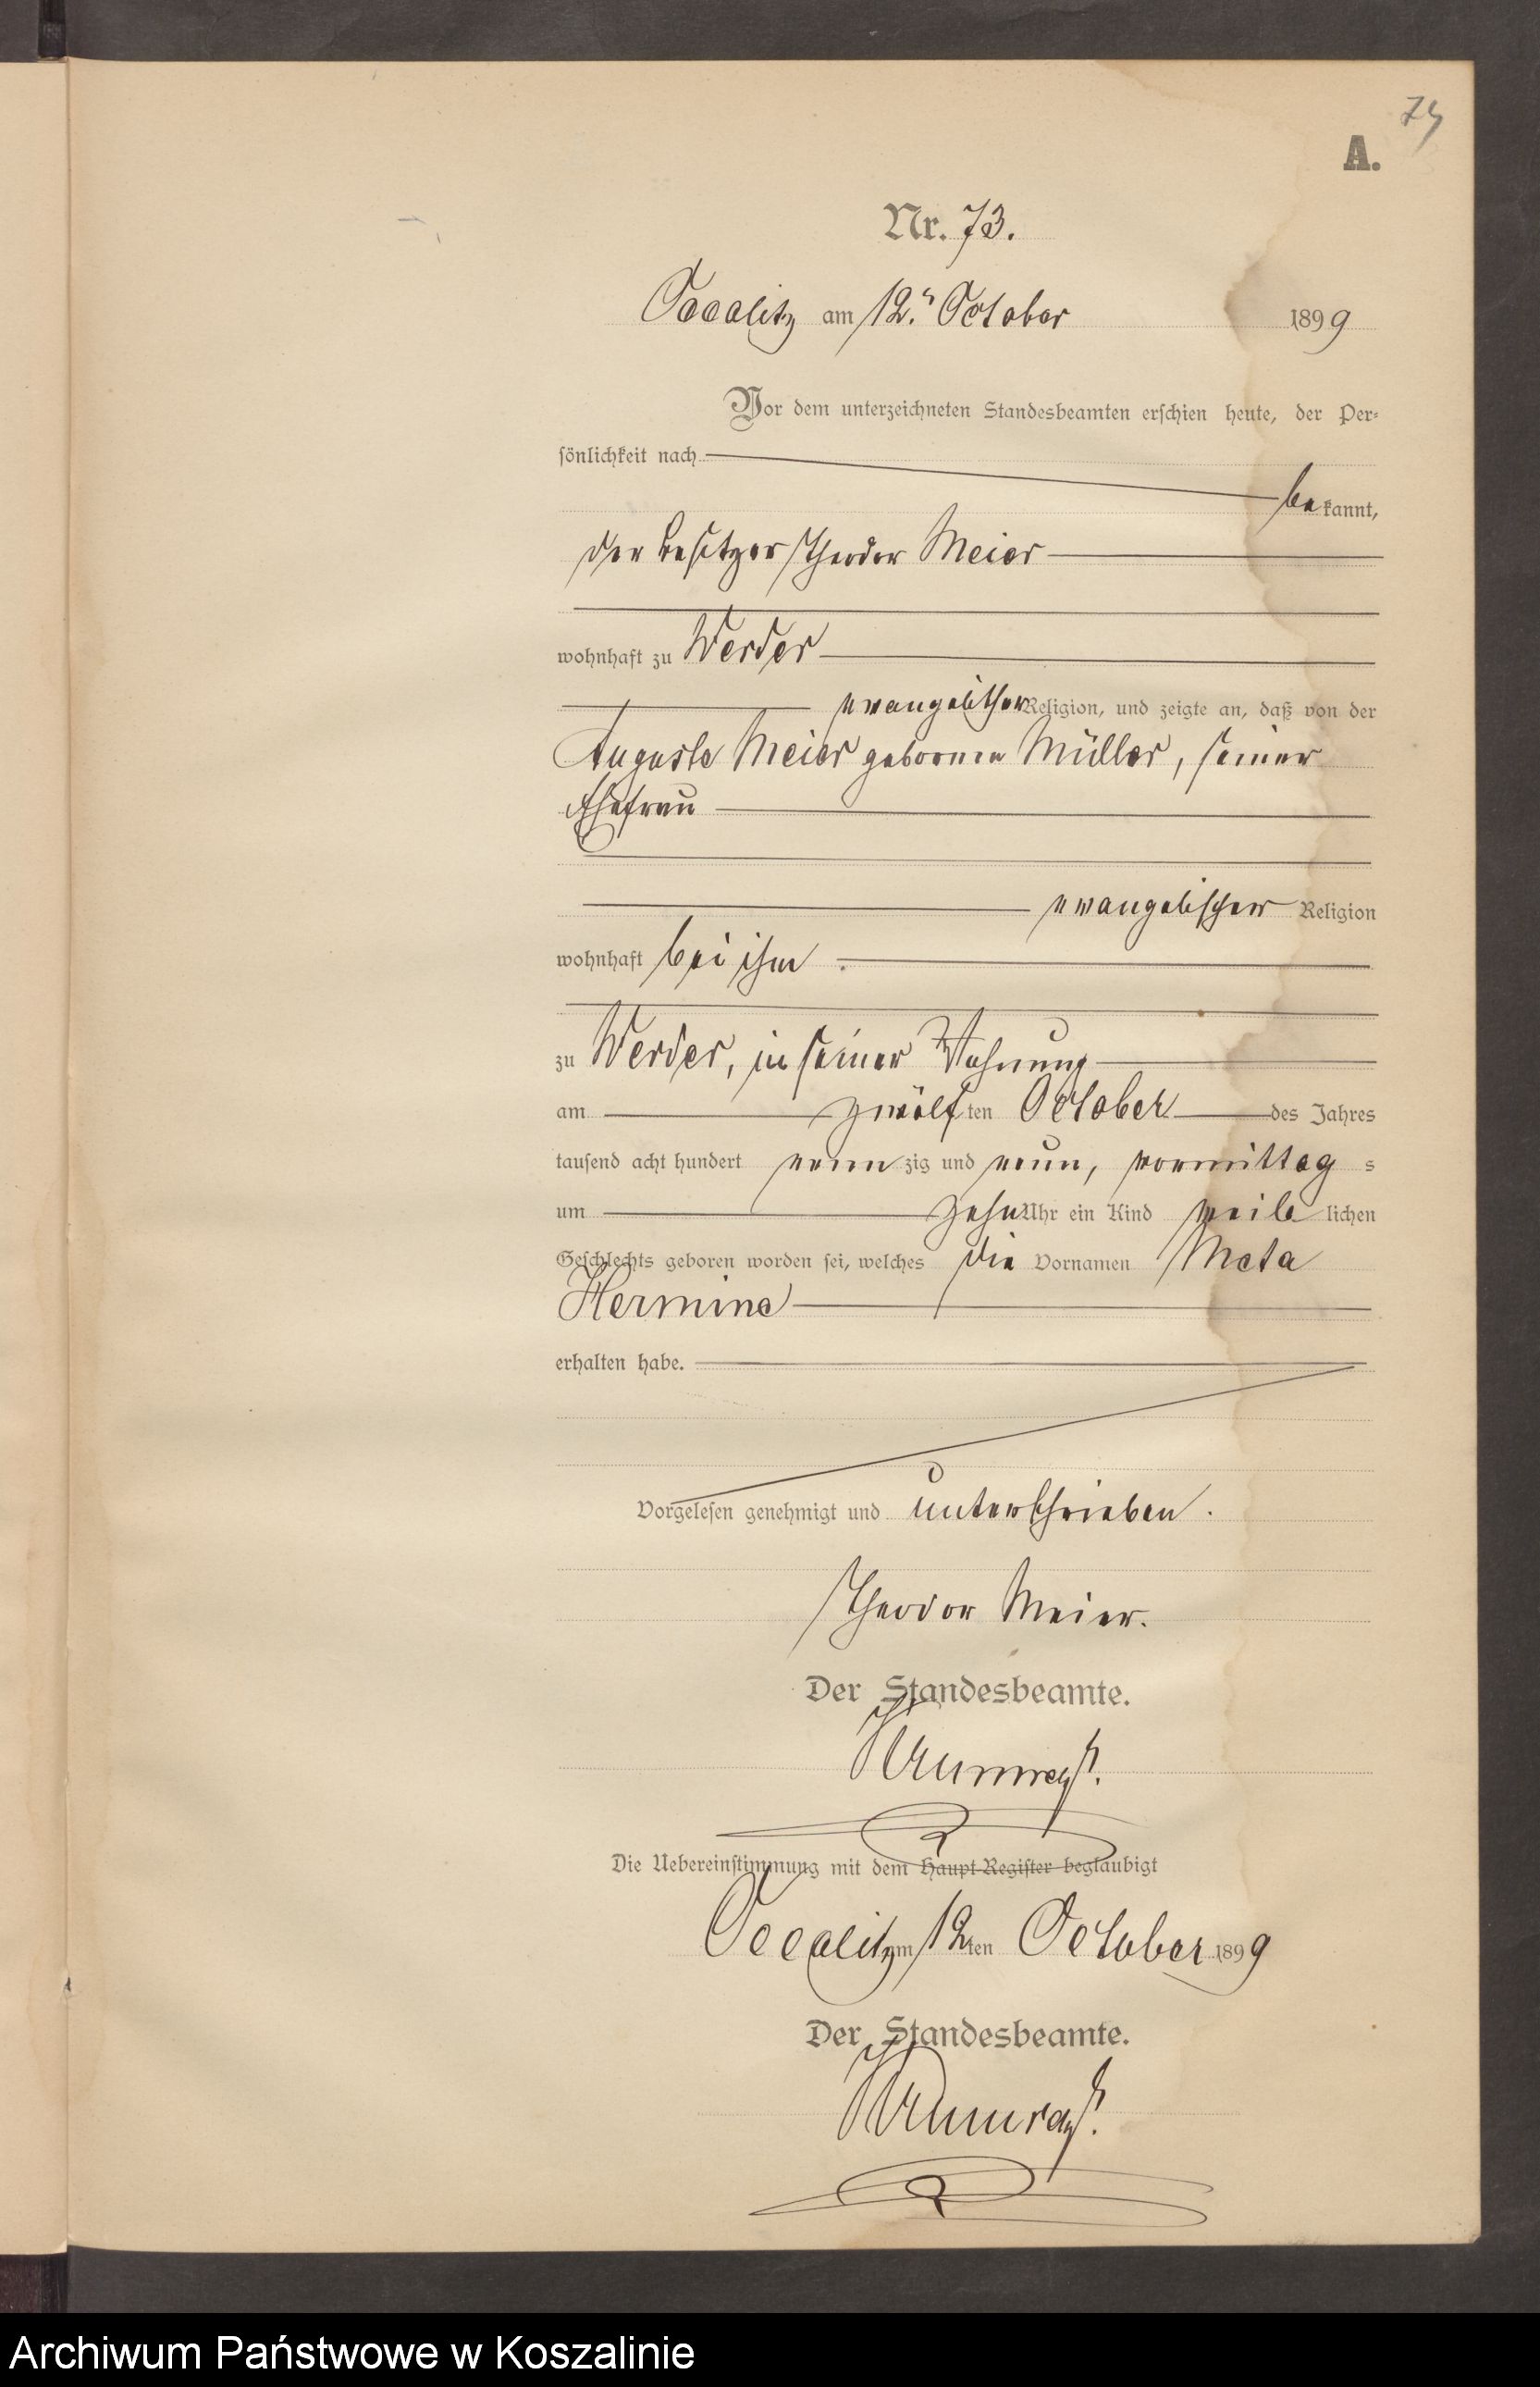 74
A.
Nr. 73.
Occalitz am 12. October 1899
Vor dem unterzeichneten Standesbeamten erschien heute, der Per-
sönlichkeit nach
bekannt,
der Besitzer Theodor Meier
wohnhaft zu Werder
evangelischer Religion, und zeigte an, daß von der
Auguste Meier geborene Müller, seiner
Ehefrau
evangelischer Religion
wohnhaft bei ihm
zu Werder, in seiner Wohnung
am zwölften October des Jahres
tausend acht hundert neunzig und neun, vormittags
um zehn Uhr ein Kind weiblichen
Geschlechts geboren worden sei, welches die Vornamen Meta
Hermine
erhalten habe.
Vorgelesen genehmigt und unterschrieben.
Theodor Meier.
Der Standesbeamte.
Die Uebereinstimmung mit dem Haupt-Register beglaubigt
Occalitz am 12ten October 1899
Der Standesbeamte.
Archiwum Państwowe w Koszalinie